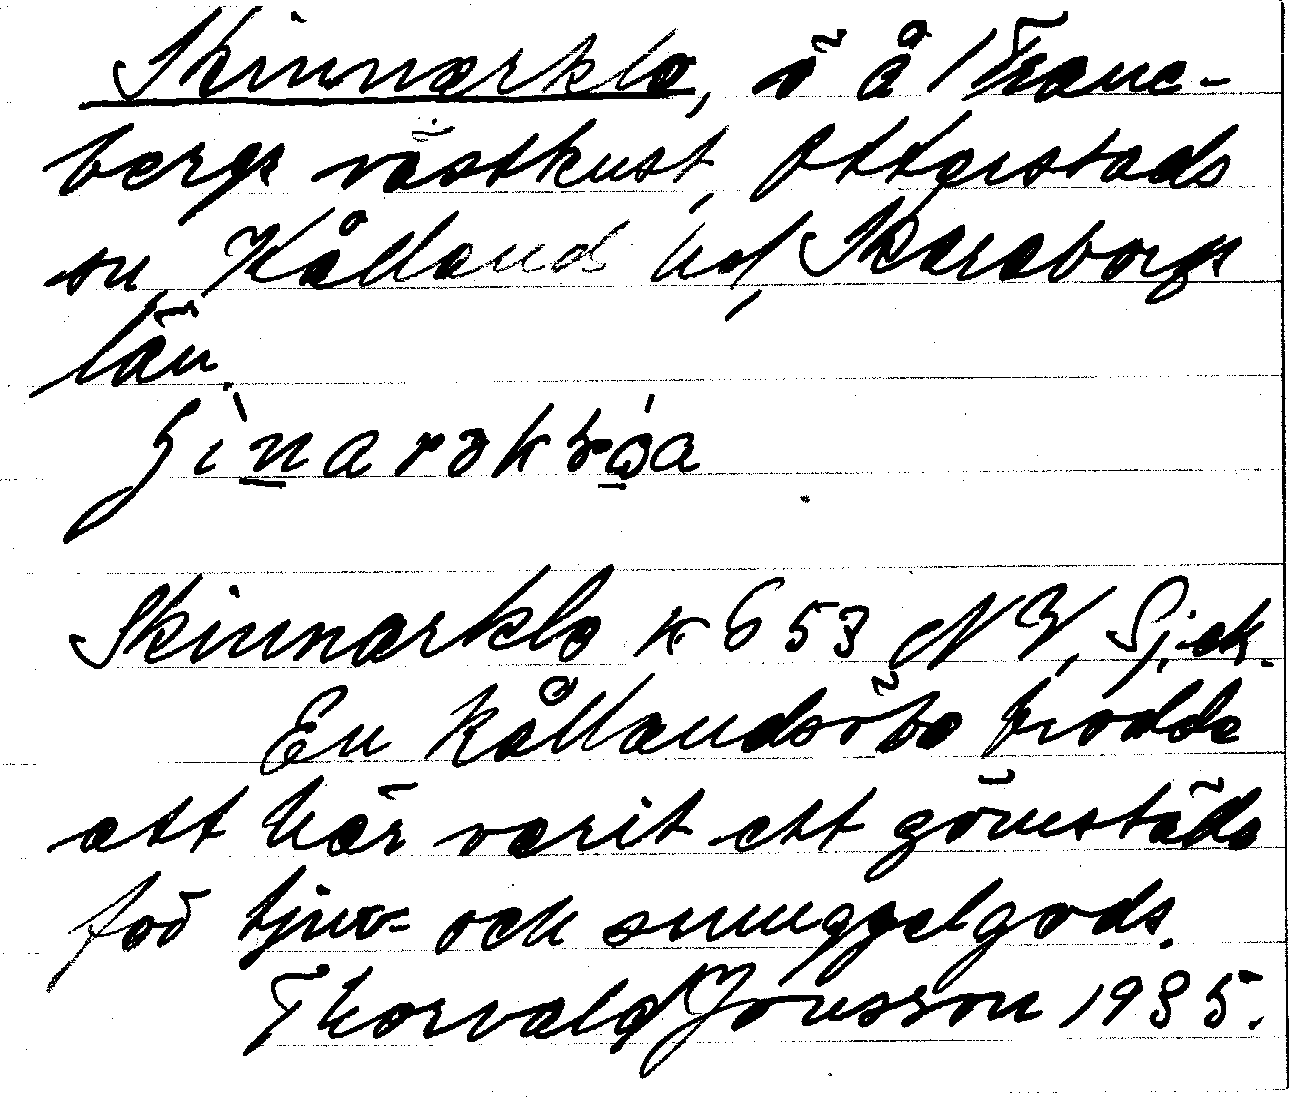 Skinnarklo, ö å Trane-
bergs västkust, Otterstads
sn, Kållands hd, Skaraborgs
län.
Skinnarklo x 653 NV, Sj.ek.
En kållandsöbo trodde
att här varit ett gömställe
för tjuv- och smuggelgods.
Thorvald Jonsson 1935.